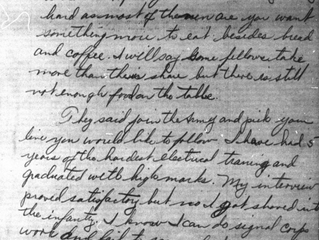 hard as most of the men are you want
something more to eat besides bread
and coffee. I will say some fellows take
more than their share but there is still
not enough food on the table.
They said join the Army and pick your
line you would like to follow I have had 5
years of the hardest electrical training and
graduated with high marks. My interview
proved satisfactory but no I got shoved into
the infantry. I know I can do signal corps
work and